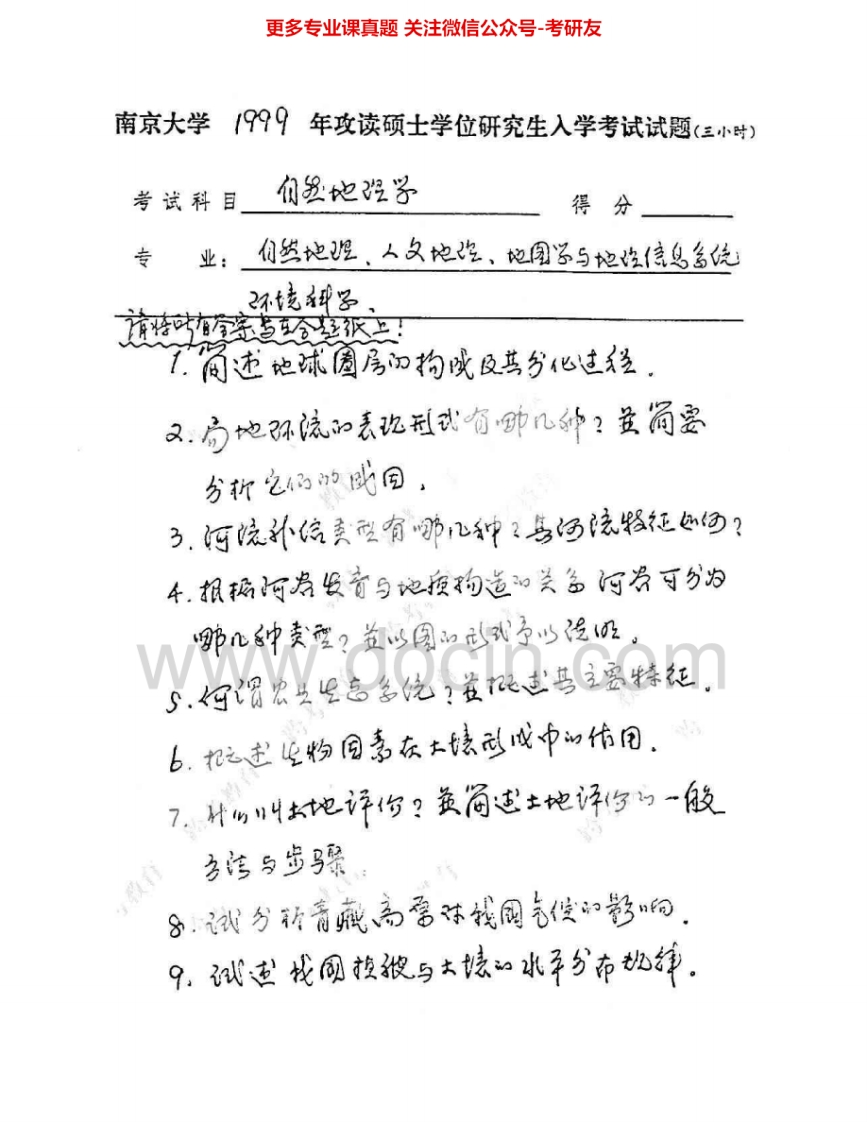 更多专业课真题 关注微信公众号-考研友
南京大学 1999 年攻读硕士学位研究生入学考试试题(三小时)
考试科目 自然地理学 得分
专 业: 自然地理、人文地理、地图学与地理信息系统
环境科学、
请将所有答案写在答题纸上!
1. 简述地球圈层的构成及其分化过程.
2. 局地环流的表现形式有哪几种?并简要
分析它们的成因.
3. 河流补给类型有哪几种?其河流特征如何?
4. 根据河谷发育与地质构造的关系河谷可分为
哪几种类型?并以图的形式予以说明.
www.docin.com
5. 何谓农业生态系统?并概述其主要特征.
6. 概述生物因素在土壤形成中的作用.
7. 什么叫土地评价?并简述土地评价的一般
方法与步骤.
8. 试分析青藏高原对我国气候的影响.
9. 试述我国植被与土壤的水平分布规律.